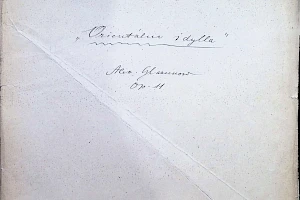 „Orientálna idylla"
Alex. Glazunow
Op. 11